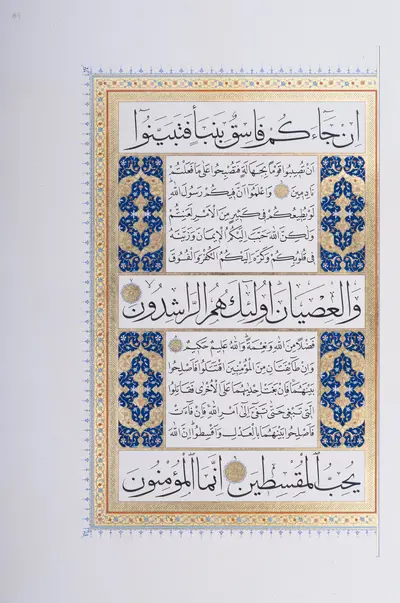 اِنْ جَٓاءَكُمْ فَاسِقٌ بِنَبَأٍ فَتَبَيَّنُٓوا
اَنْ تُصٖيبُوا قَوْمًا بِجَهَالَةٍ فَتُصْبِحُوا عَلٰى مَا فَعَلْتُمْ
نَادِمٖينَ وَاعْلَمُٓوا اَنَّ فٖيكُمْ رَسُولَ اللّٰهِ
لَوْ يُطٖيعُكُمْ فٖى كَثٖيرٍ مِنَ الْاَمْرِ لَعَنِتُّمْ
وَلٰكِنَّ اللّٰهَ حَبَّبَ اِلَيْكُمُ الْاٖيمَانَ وَزَيَّنَهُ
فٖى قُلُوبِكُمْ وَكَرَّهَ اِلَيْكُمُ الْكُفْرَ وَالْفُسُوقَ
وَالْعِصْيَانَ اُولٰٓئِكَ هُمُ الرَّاشِدُونَ
فَضْلًا مِنَ اللّٰهِ وَنِعْمَةً وَاللّٰهُ عَلٖيمٌ حَكٖيمٌ
وَاِنْ طَٓائِفَتَانِ مِنَ الْمُؤْمِنٖينَ اقْتَتَلُوا فَاَصْلِحُوا
بَيْنَهُمَا فَاِنْ بَغَتْ اِحْدٰيهُمَا عَلَى الْاُخْرٰى فَقَاتِلُوا
الَّتٖى تَبْغٖى حَتّٰى تَفٖٓىءَ اِلٰٓى اَمْرِ اللّٰهِ فَاِنْ فَٓاءَتْ
فَاَصْلِحُوا بَيْنَهُمَا بِالْعَدْلِ وَاَقْسِطُوا اِنَّ اللّٰهَ
يُحِبُّ الْمُقْسِطٖينَ اِنَّمَا الْمُؤْمِنُونَ